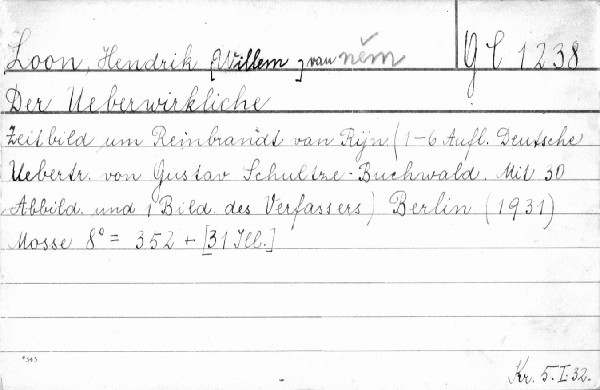 Loon, Hendrik [Willem] van něm
G C 1238
Der Ueberwirkliche
Zeitbild um Reinbrandt van Rijn. (1-6 Aufl. Deutsche
Uebertr. von Gustav Schultze-Buchwald. Mit 30
Abbild. und 1 Bild. des Verfassers) Berlin (1931)
Mosse 8° = 352 + [31 Ill.]
Kr. 5.I.32.